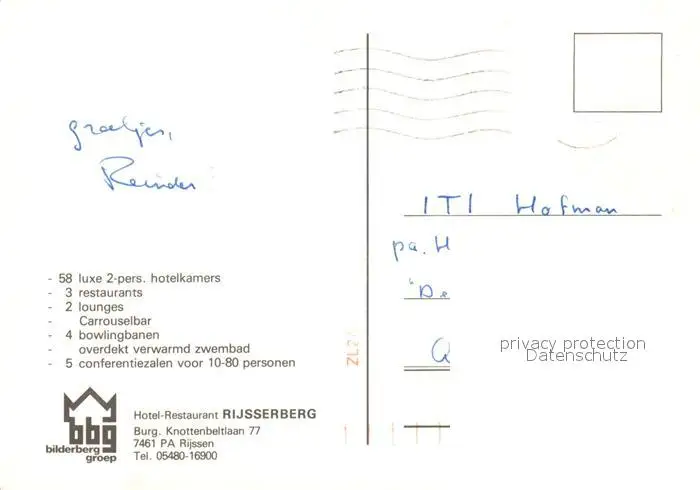 groetjes,
Reinder
- 58 luxe 2-pers. hotelkamers
- 3 restaurants
- 2 lounges
- Carrouselbar
- 4 bowlingbanen
- overdekt verwarmd zwembad
- 5 conferentiezalen voor 10-80 personen
bbg
bilderberg
groep
Hotel-Restaurant RIJSSERBERG
Burg. Knottenbeltlaan 77
7461 PA Rijssen
Tel. 05480-16900
ITI Hofman
pa. H
"De
privacy protection
Datenschutz